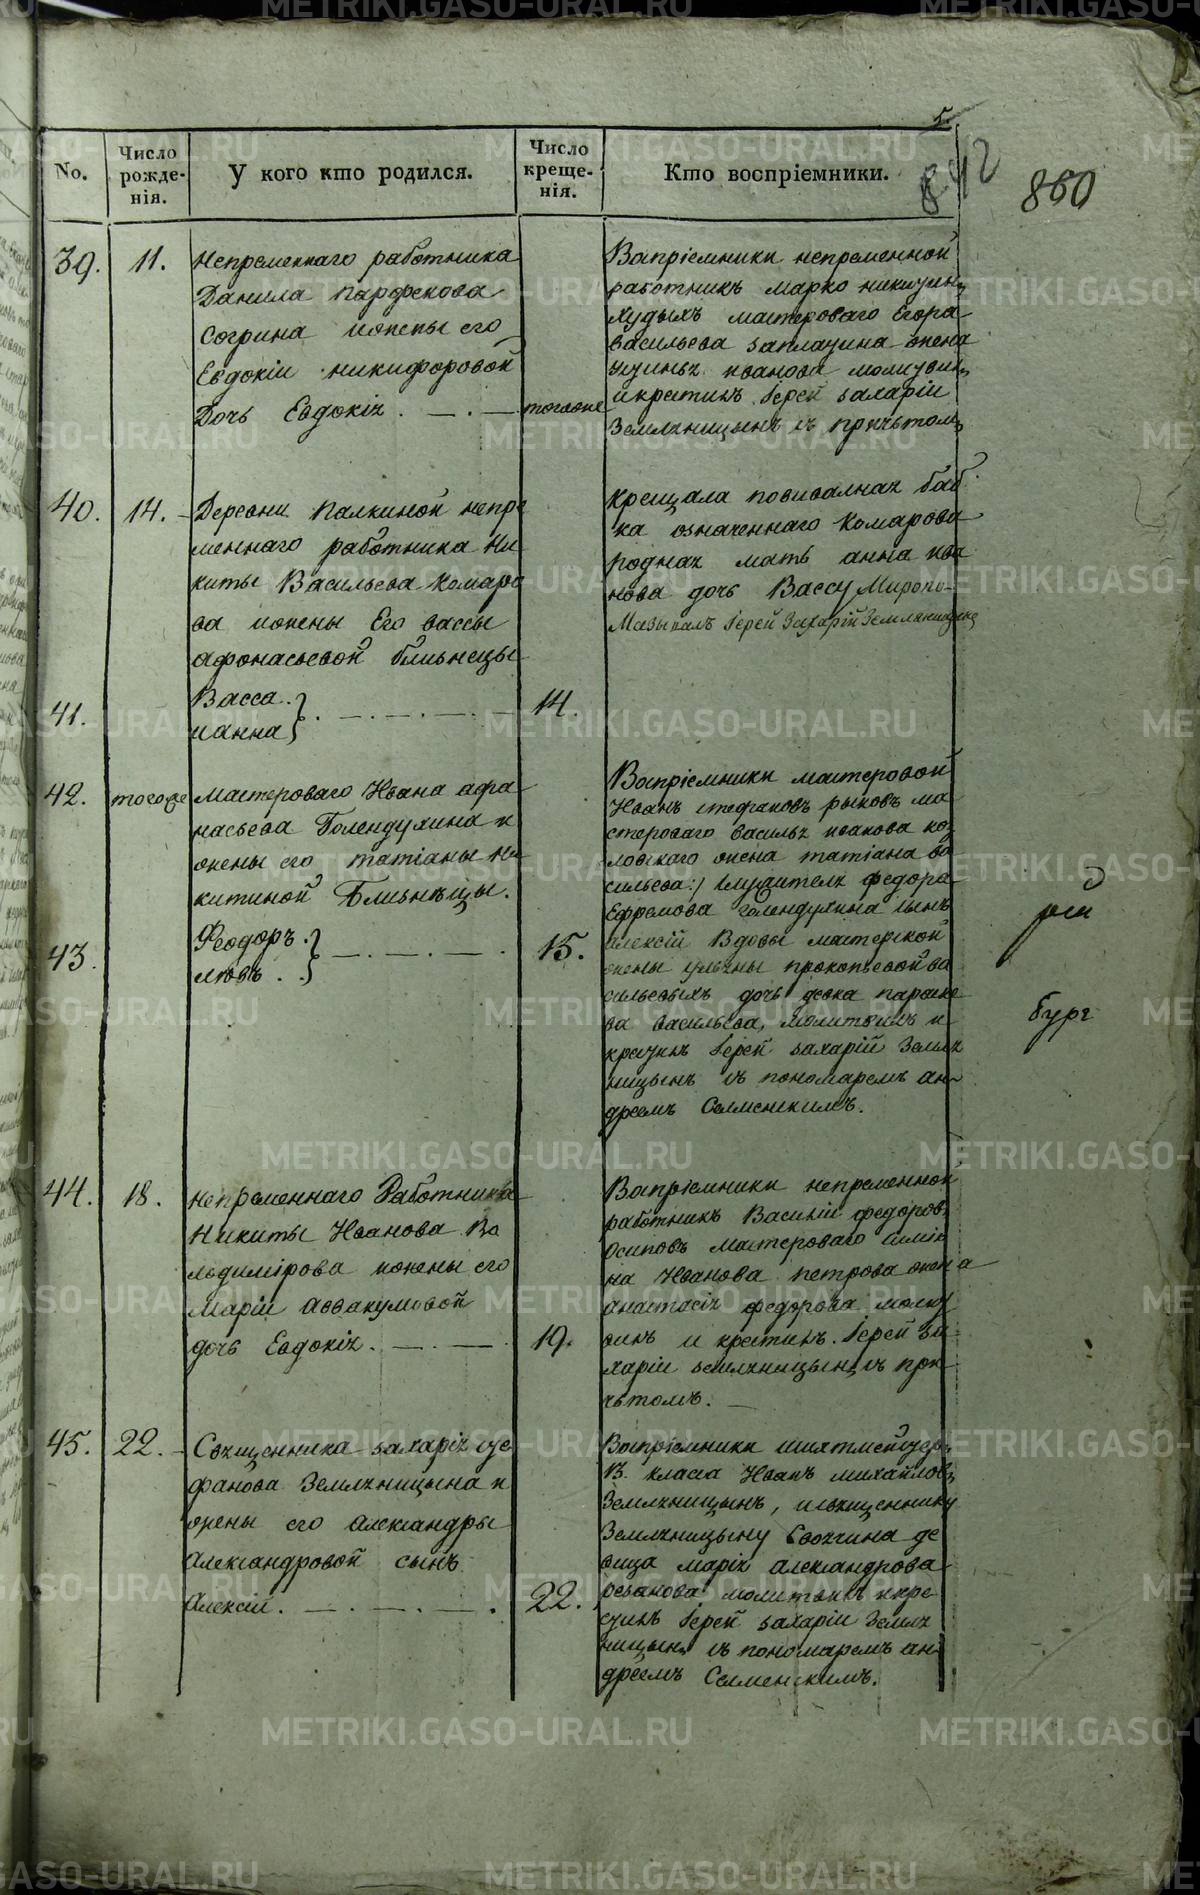 5.
842
860
No.
Число рожде-нія.
У кого кто родился.
Число креще-нія.
Кто воспріемники.
39.
11.
непременнаго работника
Данила парфенова
Согрина ижены его
Евдокіи никифоровой
Дочь Евдокія.
тогоже
Вапріемники непременной
работникъ марко
худыхъ мастероваго Егора
васильева заплатина жена
иванова
икрестилъ Іерей захарій
Земляницынъ съ причьтомъ
40.
14.
Деревни палкиной непре
меннаго работника Ни
киты Васильева комаро
ва ижены Его вассы
афонасьевой близнецы
41.
Васса.
ианна
14.
крещала повивалная баб
ка означеннаго комарова
родная мать анна ива
нова дочь Вассу Миропо-
Мазывалъ Іерей Захарій Земляницинъ
42.
тогоже
мастероваго Ивана афа
насьева Голендухина и
жены его татіаны Ни
китиной Близнецы.
43.
Феодоръ.
любвь.
15.
Вапріемники мастеровой
Иванъ стефановъ рыковъ ма
стероваго василья иванова ко
ловскаго жена татіана ва
сильева:/ служителя федора
Ефремова голендухина сынъ
алексій Вдовы мастерской
жены ульяны прокопьевой ва
сильевыхъ дочь девка параске
ва васильева, молитвилъ и
крестилъ Іерей захарій Земля
ницынъ съ пономаремъ ан-
дреемъ Селменскимъ.
рги
бург
44.
18.
непременнаго Работника
Никиты Иванова Во
льдимірова ижены его
Маріи аввакумовой
дочь Евдокія.
19.
Вапріемники непременной
работникъ Василій федоровъ
осиповъ мастероваго симіо
на Иванова петрова жена
анастасія федорова молит
вилъ и крестилъ. Іерей за-
харій землянницынъ съ при-
чьтомъ.
45.
22.
Священника захарія сте
фанова Землянницына и
жены его александры
Александровой сынъ
Алексій.
22.
Вапріемники
В. класа Иванъ михайловъ
Землянницынъ, исвященнику
Землянницыну Своячина де
вица марія александрова
молитвилъ и кре
стилъ Іерей захарій Земля
ницынъ съ пономаремъ ан
дреемъ Селменскимъ.
METRIKI.GASO-URAL.RU